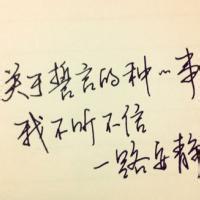 关于誓言的种种事
我不听不信
一路安静